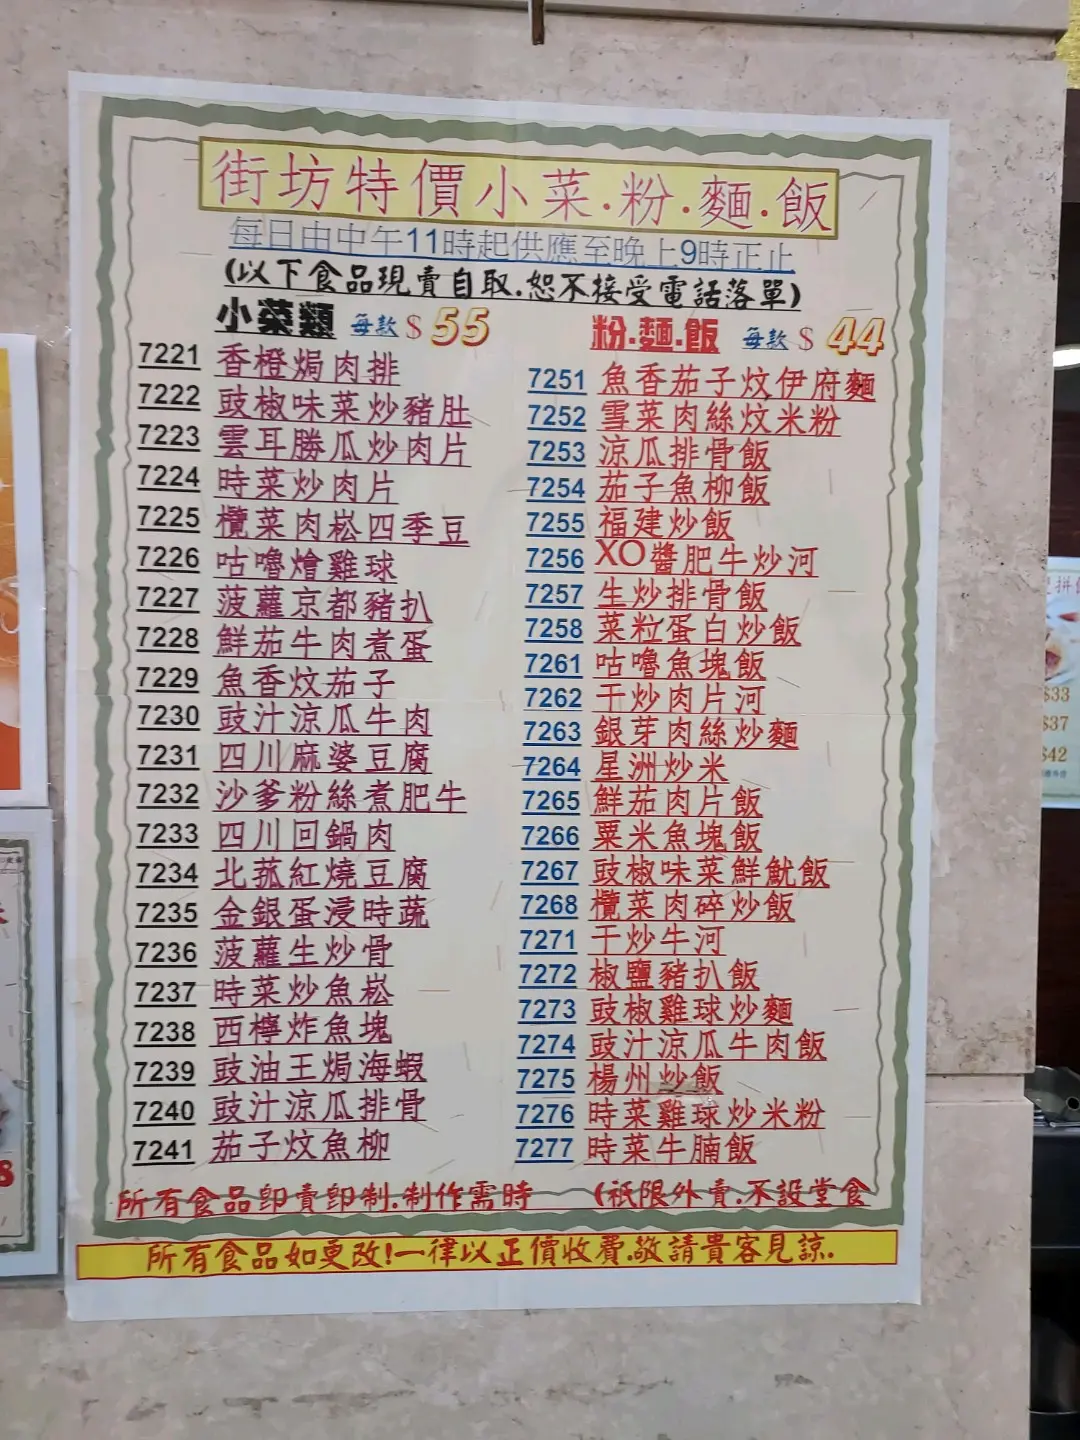 街坊特價小菜.粉.麵.飯
每日由中午11時起供應至晚上9時正止
(以下食品現賣自取.恕不接受電話落單)
小菜類 每款 $ 55
7221 香橙焗肉排
7222 豉椒味菜炒豬肚
7223 雲耳勝瓜炒肉片
7224 時菜炒肉片
7225 欖菜肉崧四季豆
7226 咕嚕燴雞球
7227 菠蘿京都豬扒
7228 鮮茄牛肉煮蛋
7229 魚香炆茄子
7230 豉汁涼瓜牛肉
7231 四川麻婆豆腐
7232 沙爹粉絲煮肥牛
7233 四川回鍋肉
7234 北菰紅燒豆腐
7235 金銀蛋浸時蔬
7236 菠蘿生炒骨
7237 時菜炒魚崧
7238 西檸炸魚塊
7239 豉油王焗海蝦
7240 豉汁涼瓜排骨
7241 茄子炆魚柳
粉.麵.飯 每款 $ 44
7251 魚香茄子炆伊府麵
7252 雪菜肉絲炆米粉
7253 涼瓜排骨飯
7254 茄子魚柳飯
7255 福建炒飯
7256 XO醬肥牛炒河
7257 生炒排骨飯
7258 菜粒蛋白炒飯
7261 咕嚕魚塊飯
7262 干炒肉片河
7263 銀芽肉絲炒麵
7264 星洲炒米
7265 鮮茄肉片飯
7266 粟米魚塊飯
7267 豉椒味菜鮮魷飯
7268 欖菜肉碎炒飯
7271 干炒牛河
7272 椒鹽豬扒飯
7273 豉椒雞球炒麵
7274 豉汁涼瓜牛肉飯
7275 楊州炒飯
7276 時菜雞球炒米粉
7277 時菜牛腩飯
所有食品即賣即制.制作需時 (祇限外賣.不設堂食
所有食品如更改!一律以正價收費.敬請貴客見諒.
$33
$37
$42
8